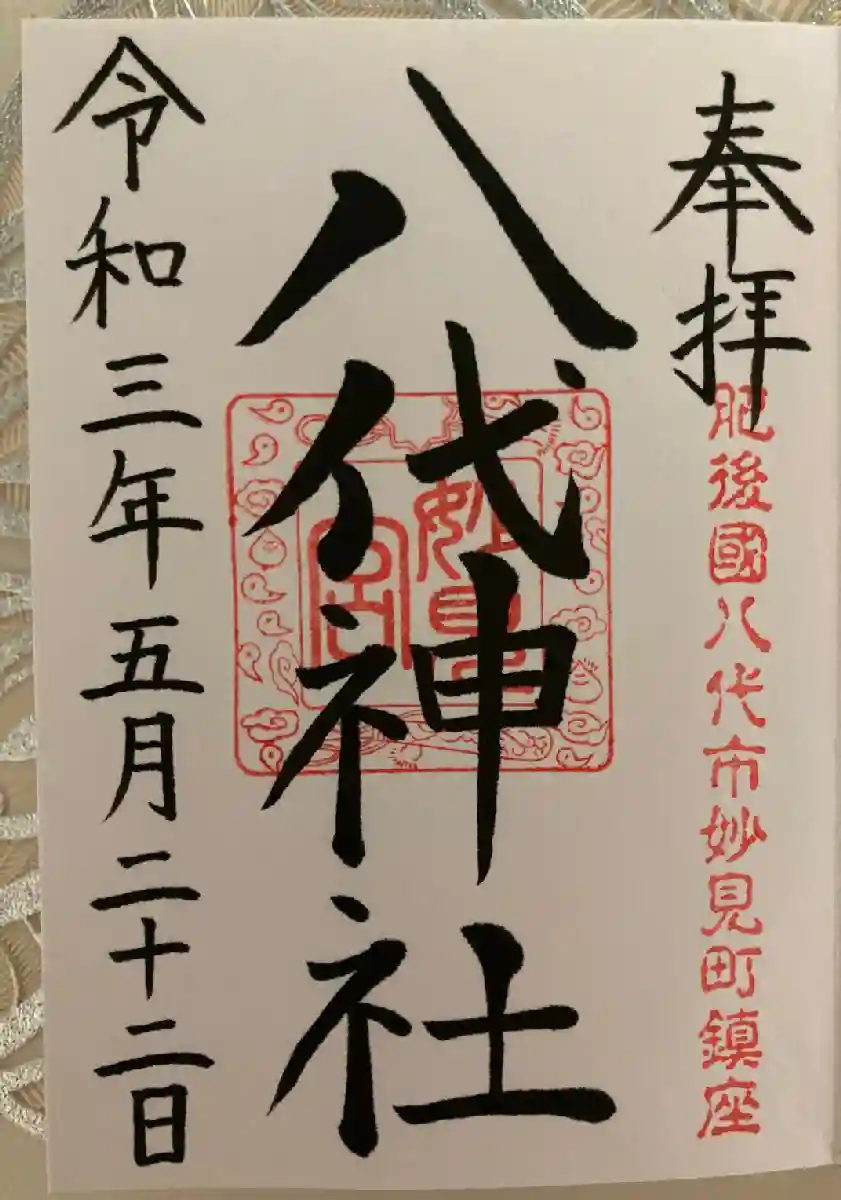 奉拝
肥後國八代市妙見町鎮座
八代神社
妙見
宮
令和三年五月二十二日